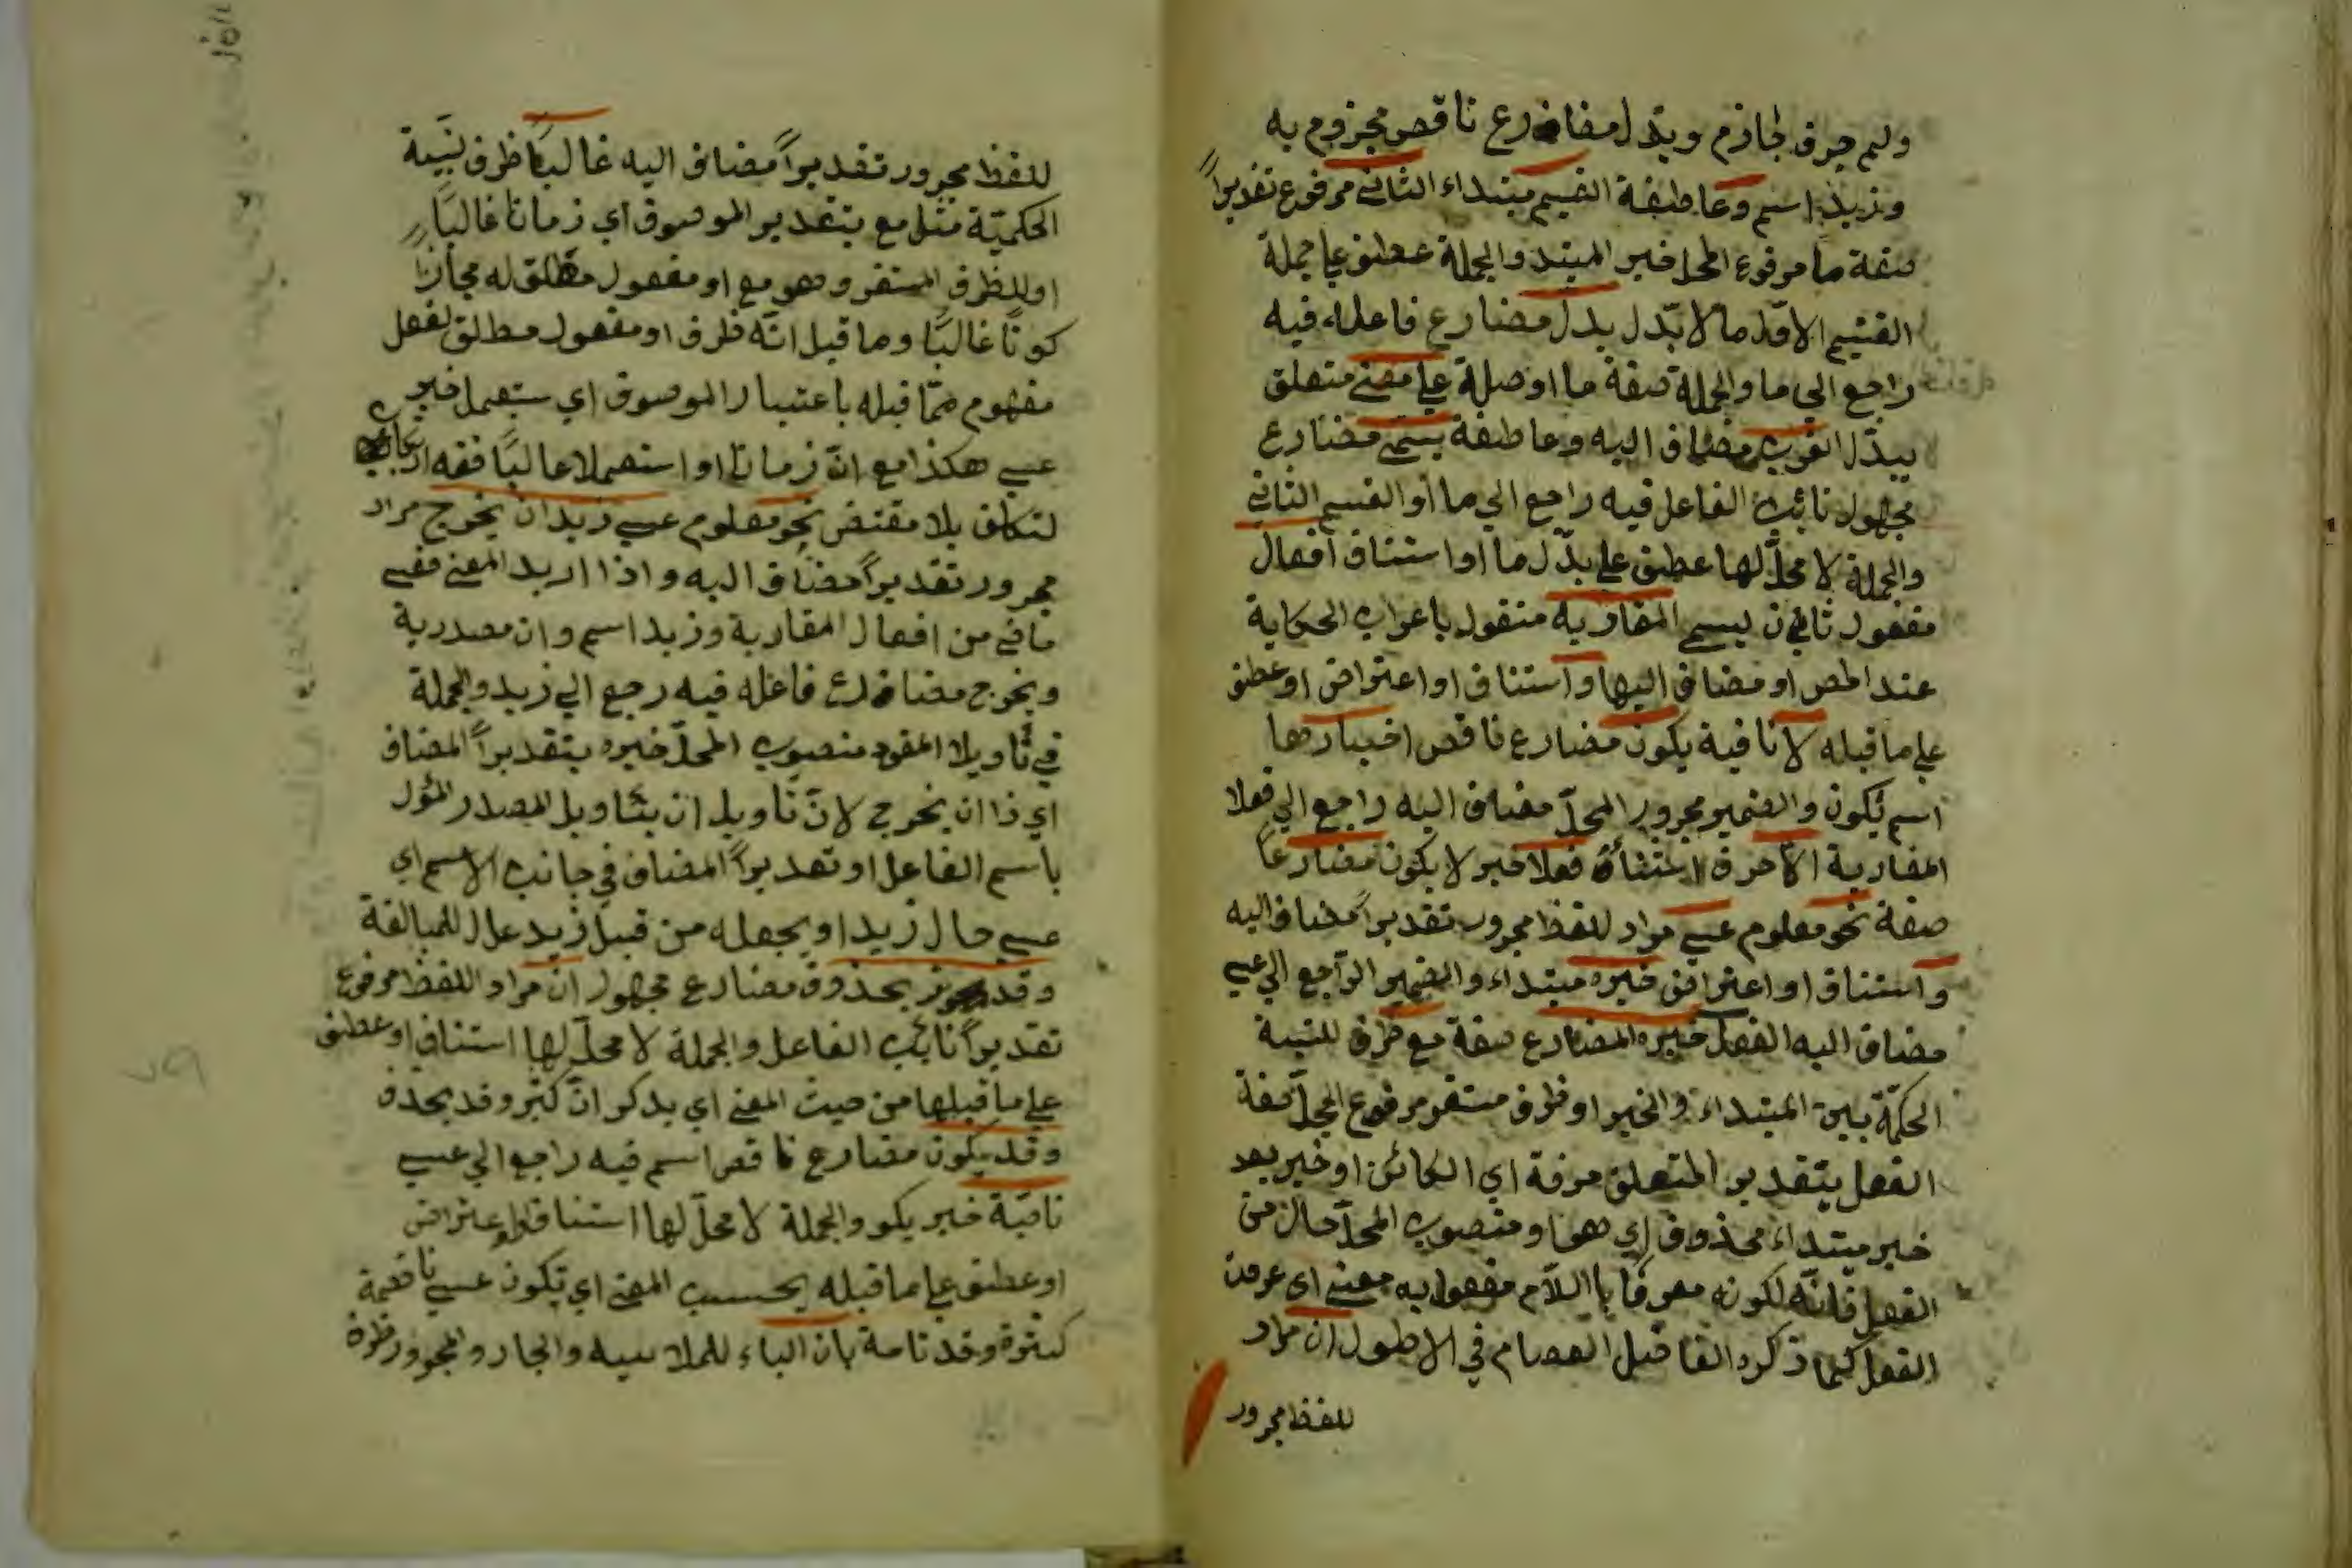 ولم حرف جازم ويدل مضارع ناقص مجزوم به
وزيد اسم وعاطفة القسيم مبتداء الثاني مرفوع تقديراً
صفة ما مرفوع المحل خبر المبتد والجملة عطف على جملة
القسيم الاول ما لا يدل يدل مضارع فاعله فيه
راجع الى ما والجملة صفة ما او صلة على معنى متعلق
يبدل القرب مضاف اليه وعاطفة يسمى مضارع
مجهول نائب الفاعل فيه راجع الي ما او القسم الثاني
والجملة لا محل لها عطف على يدل ما او استئناف افعال
مفعول ثاني ن ليسمى المقاربة منقول باعراب الحكاية
عند المص او مضاف اليها واستئناف او اعتراض او عطف
على ما قبله لا نافية يكون مضارع ناقص اخبارها
اسم يكون والضمير مجرور المحل مضاف اليه راجع الي فعلا
المقاربة الا حرف استثناء فعلا خبر لا يكون مضارعاً
صفة نحو معلوم عسى مراد للفظ مجرور تقديراً مضاف اليه
واستئناف او اعتراض خبره مبتداء والضمير الراجع الي عسى
مضاف اليه الفعل خبره المضارع صفة مع ظرف للنسبة
الحكمية بين المبتداء والخبر او ظرف مستقر مرفوع المحل صفة
الفعل بتقدير المتعلق معرفة اي الكائن او خبر بعد
خبر مبتداء محذوف اي هو او منصوب المحل حال من
الفعل فانه لكونه معرفا باللام مفعول به معنى اى عرفت
الفعل كما ذكره الفاضل العصام في الاطول ان مراد
للفظ مجرور
للفظ مجرور تقديراً مضاف اليه غالبًا ظرف نسبة
الحكمية مثل مع بتقدير الموصوف اي زمانا غالبًا
او للظرف المستقر وهو مع او مفعول مطلق له مجازًا
كونًا غالبًا وما قيل انه ظرف او مفعول مطلق لفعل
مفهوم مما قبله باعتبار الموصوف اي ستعمل خبر
عسى هكذا مع ان زمانًا او استعملا غالبًا ففيه ارتكاب
لتكلف بلا مقتض نحو معلوم عسى زيد ان يخرج مراد
مجرور تقديراً مضاف اليه واذا اريد المعنى فعسى
ماض من افعال المقاربة وزيد اسم وان مصدرية
ويخرج مضارع فاعله فيه رجع الي زيد والجملة
في تأويلا المفرد منصوب المحل خبره بتقديراً المضاف
اي ذا ان يخرج لان تاويل ان بتاويل المصدر المؤل
باسم الفاعل او تقديراً المضاف في جانب الاسم اي
عسى حال زيد او يجعله من قبيل زيد عدل للمبالغة
وقد يحذف مضارع مجهول ان مراد اللفظ مرفوع
تقديراً نائب الفاعل والجملة لا محل لها استئناف او عطف
على ما قبلها من حيث المعنى اي يذكر ان كثيرا وقد يحذف
وقد يكون مضارع ناقص اسم فيه راجع الي عسى
تامّة خبر يكو والجملة لا محل لها استئناف او اعتراض
او عطف على ما قبله بحسب المعنى اي تكون عسى ناقصة
كثيرة وقد تامة بان الباء للملابسة والجار والمجرور ظرف